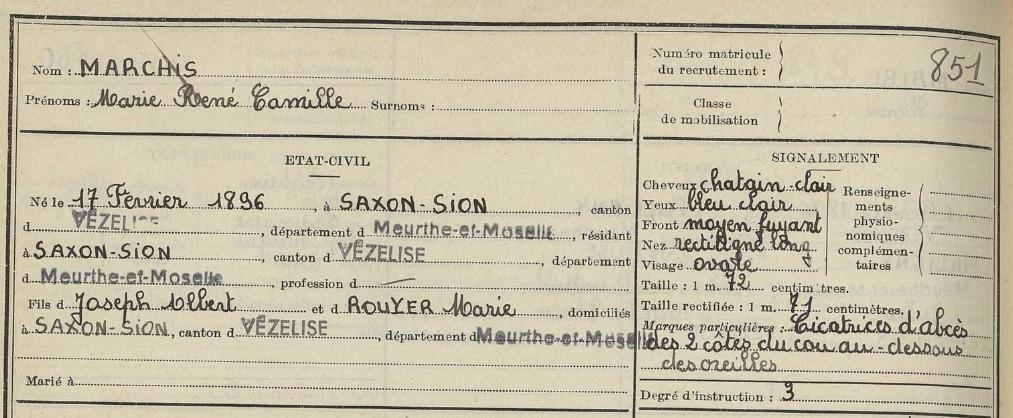 Nom : MARCHIS
Prénoms : Marie René Camille Surnoms :
ETAT-CIVIL
Né le 17 Février 1896, à SAXON-SION, canton
d VÉZELISE, département d Meurthe-et-Moselle, résidant
à SAXON-SION, canton d VÉZELISE, département
d Meurthe-et-Moselle, profession d
Fils d Joseph Albert et d ROUYER Marie, domiciliés
à SAXON-SION, canton d VÉZELISE, département d Meurthe-et-Moselle
Marié à
Numéro matricule
du recrutement :
851
Classe
de mobilisation
SIGNALEMENT
Cheveux chatain clair
Yeux bleu clair
Front moyen fuyant
Nez rectiligne long
Visage ovale
Renseigne-
ments
physio-
nomiques
complémen-
taires
Taille : 1 m. 72 centimètres.
Taille rectifiée : 1 m. 71 centimètres.
Marques particulières : Cicatrices d'abcès
des 2 côtes du cou au-dessous
des oreilles
Degré d'instruction : 3